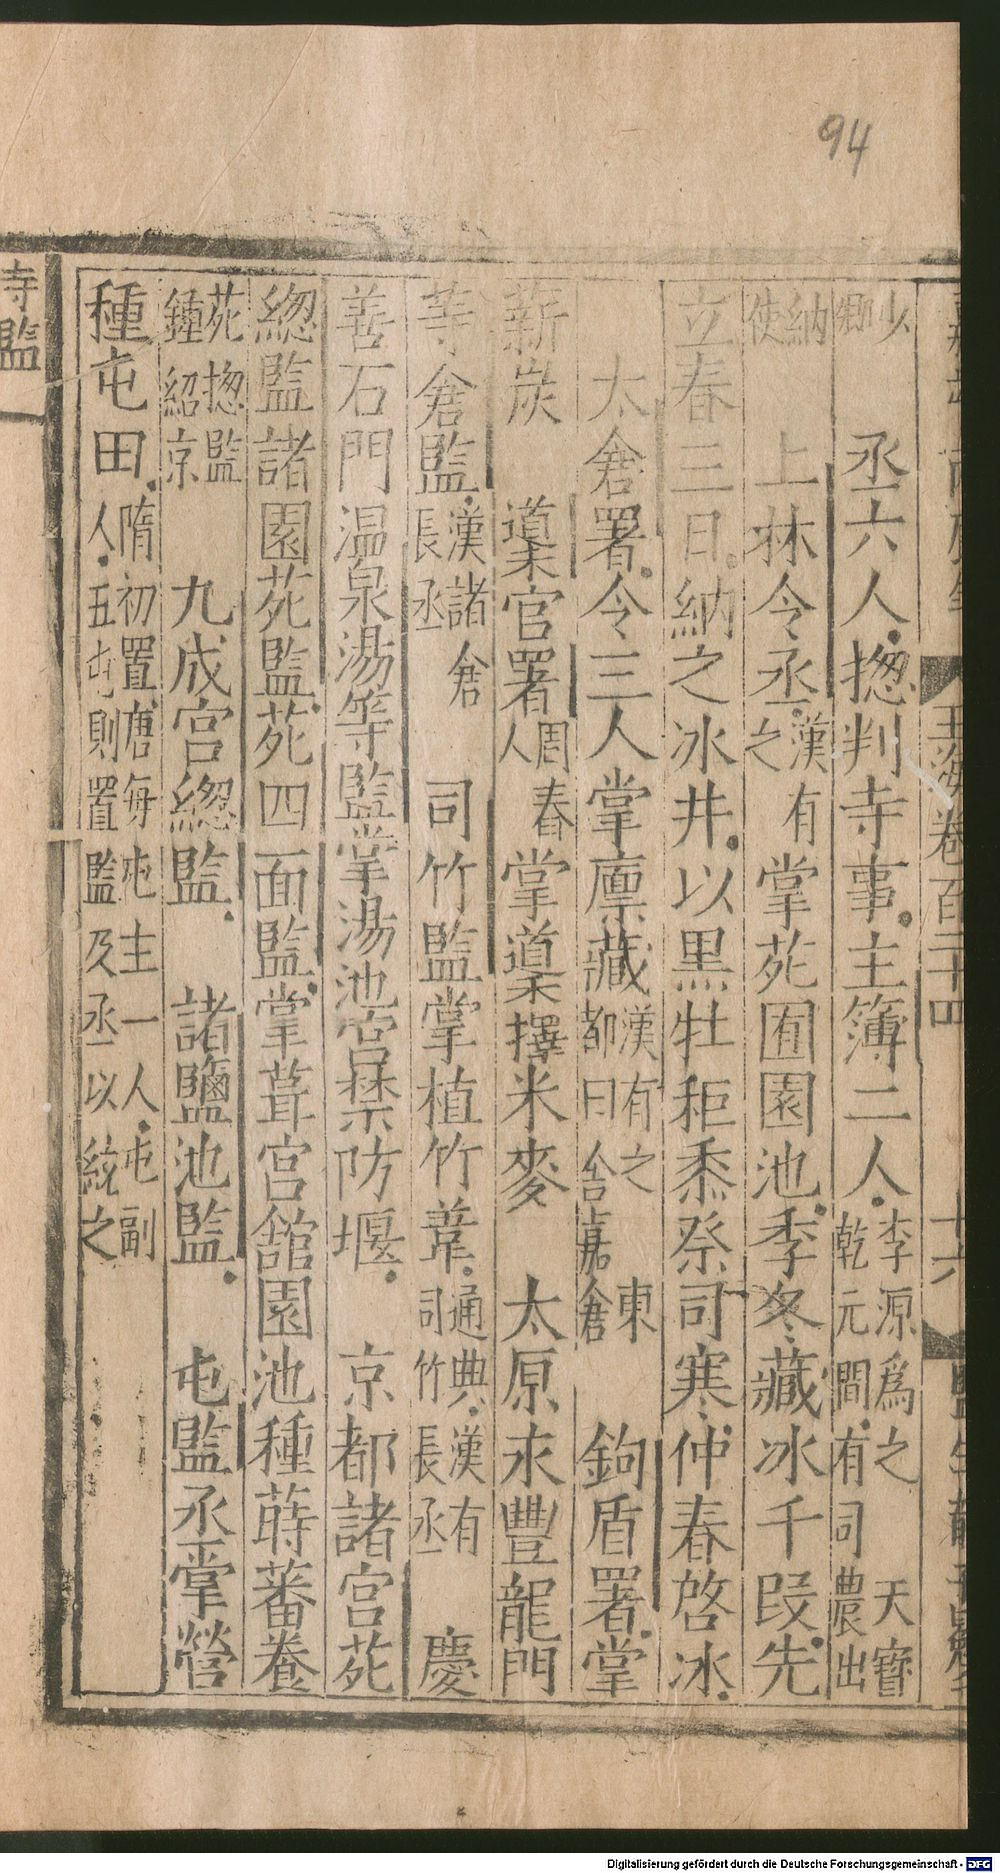 94
玉海卷百二十四
十六
少卿
丞六人揔判寺事主簿二人李源爲之天寶乾元間有司農出
納使
上林令丞漢有之掌苑囿園池季冬藏冰千段先
立春三日納之冰井以黒牡秬黍祭司寒仲春啓冰
太倉署令三人掌廪藏漢有之東都曰含嘉倉
鉤盾署掌
薪炭
䆃官署周舂人掌䆃擇米麥
太原永豐龍門
等倉監漢諸倉長丞
司竹監掌植竹葦通典漢有司竹長丞
慶
善石門温泉湯等監掌湯池宫禁防堰
京都諸宫苑
緫監諸園苑監苑四面監掌葺宫舘園池種蒔蕃養
苑揔監鍾紹京
九成宫緫監
諸鹽池監
屯監丞掌營
種屯田隋初置唐毎屯主一人屯副人五屯則置監及丞以統之
寺監
Digitalisierung gefördert durch die Deutsche Forschungsgemeinschaft - DFG